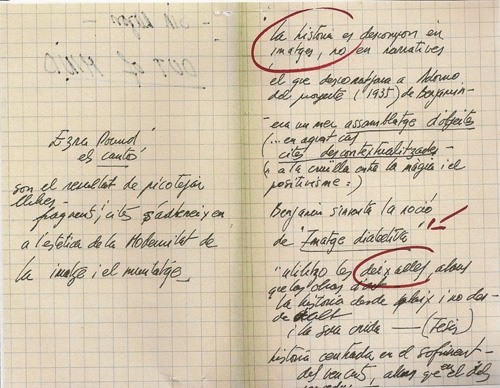 Ezra Pound
els cantó
són el resultat de picotejar
llibres
fragments, cites s'adhereix en
a l'estètica de la Modernitat de
la imatge i el muntatge
La història es descompon en
imatges, no en narratives
el que desconcertava a Adorno
del projecte (1935) de Benjamin
era un mer assemblatge d'objectes
(... en aquest cas
cites descontextualitzades
a la cruïlla entre la màgia i el
positivisme:)
Benjamin inventa la noció
de "Imatge dialèctica"
"utilitzo les deixalles, abans
que les obres d'art
la història desde baix i no des-
de dalt
i la sola crida — (Tesis
història centrada en el sofriment
del vençuts, abans que en el dels